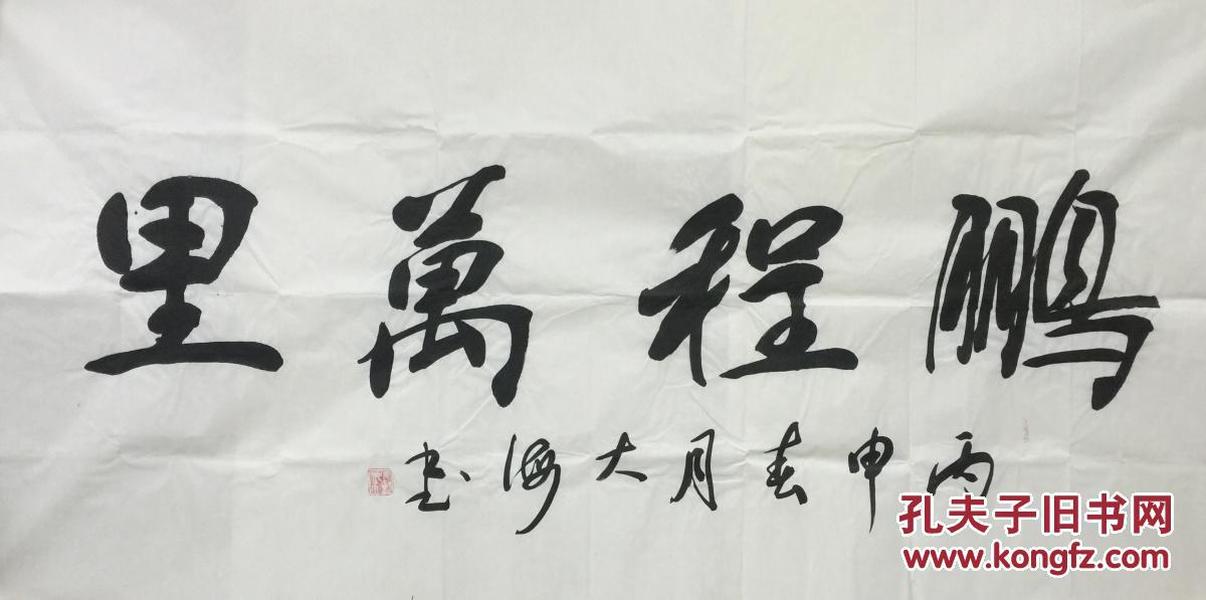 鹏程萬里
丙申春月大海书
孔夫子旧书网
www.kongfz.com